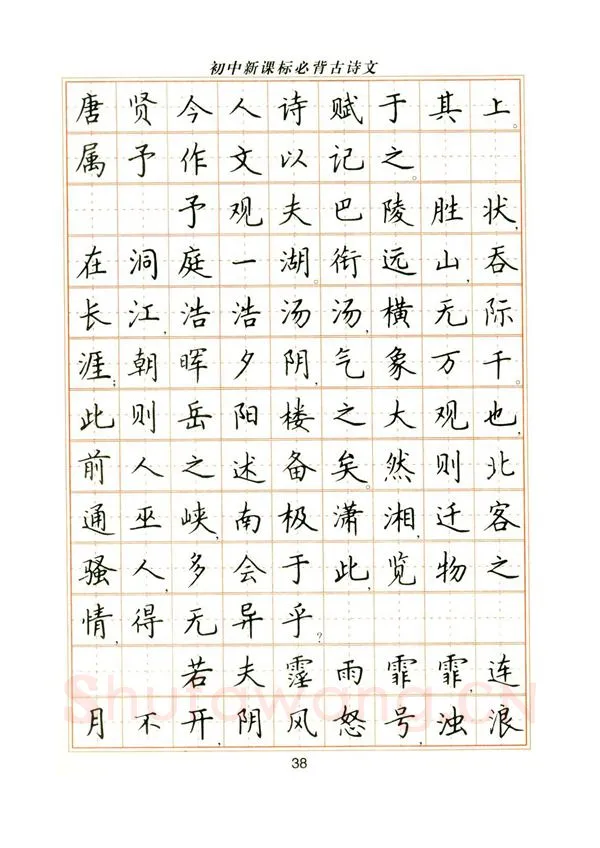 初中新课标必背古诗文
唐贤今人诗赋于其上。
属予作文以记之
予观夫巴陵胜状,
在洞庭一湖。衔远山,吞
长江,浩浩汤汤,横无际
涯;朝晖夕阴,气象万千。
此则岳阳楼之大观也,
前人之述备矣。然则北
通巫峡,南极潇湘,迁客
骚人,多会于此,览物之
情,得无异乎?
若夫霪雨霏霏,连
月不开,阴风怒号,浊浪
Shufawang.CN
38